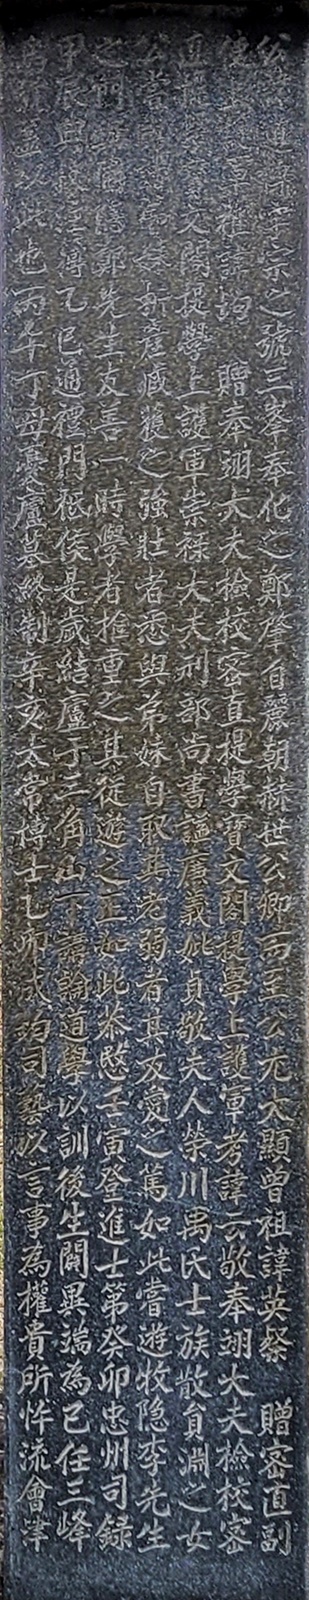 公諱道傳字宗之號三峯奉化之鄭肇自麗朝赫世公卿而至公尤大顯曾祖諱英粲 贈密直副
使 諱均 贈奉翊大夫檢校密直提學寶文閣提學上護軍考諱云敬奉翊大夫檢校密
直提學寶文閣提學上護軍崇祿大夫刑部尚書謚廉義妣貞敬夫人榮川禹氏士族散員淵之女
公嘗 斯產臧獲之強壯者悉與弟妹自取其老弱者其友愛之篤如此嘗遊牧隱李先生
之門與 鄭先生友善一時學者推重之其從遊之正如此恭愍壬寅登進士第癸卯忠州司錄
甲辰典 注簿乙巳通禮門祗候是歲結廬于三角山下講論道學以訓後生闢異端為己任三峰
齋號蓋以此也丙午丁母憂廬墓終制辛亥太常博士乙卯成均司藝以言事為權貴所忤流會津